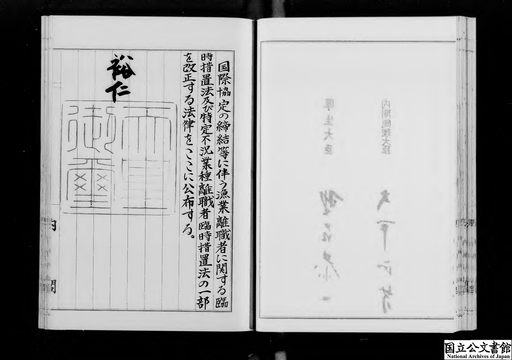 国際協定の締結等に伴う漁業離職者に関する臨
時措置法及び特定不況業種離職者臨時措置法の一部
を改正する法律をここに公布する。
裕仁
天皇
御璽
内閣
国立公文書館
National Archives of Japan